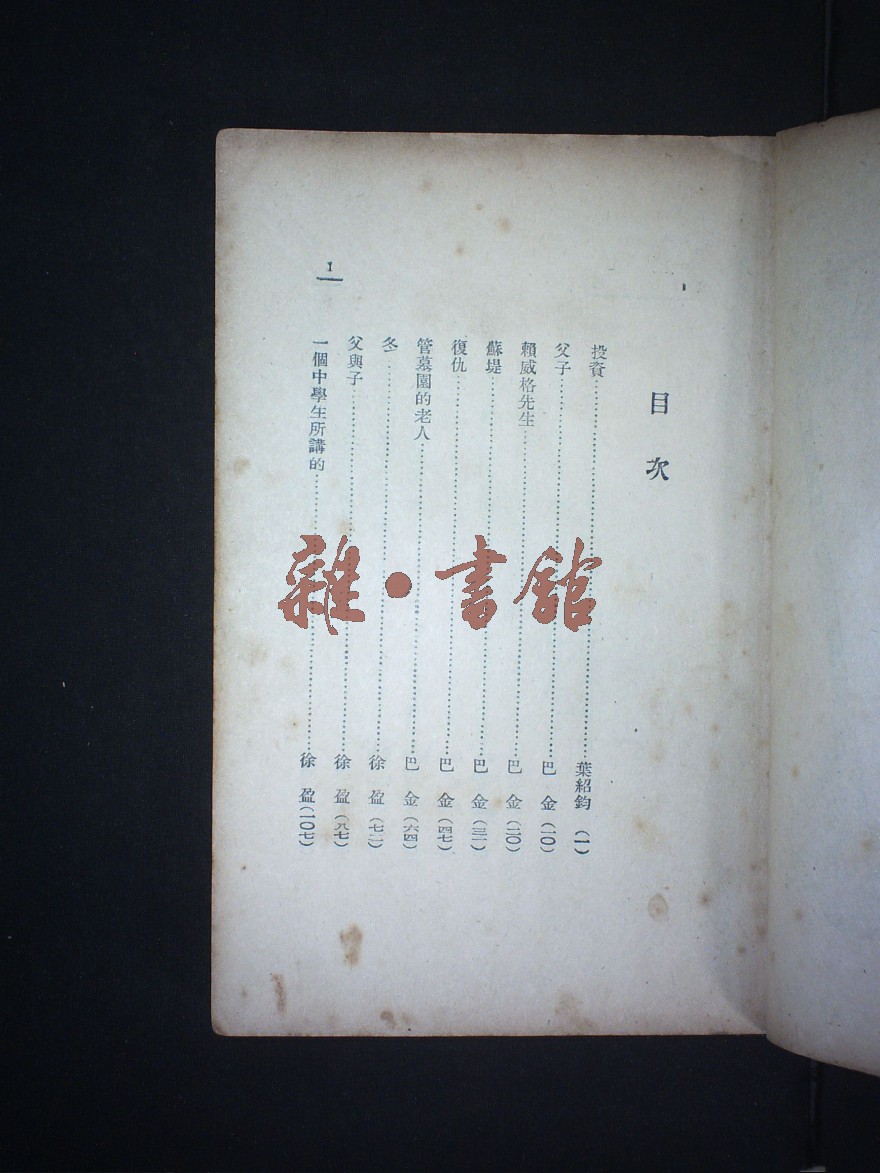 目次
投資……葉紹鈞(一)
父子……巴金(一〇)
賴威格先生……巴金(二〇)
蘇堤……巴金(三一)
復仇……巴金(四七)
管墓園的老人……巴金(六四)
冬……徐盈(七二)
父與子……徐盈(八七)
一個中學生所講的……徐盈(一〇七)
1
雜·書館